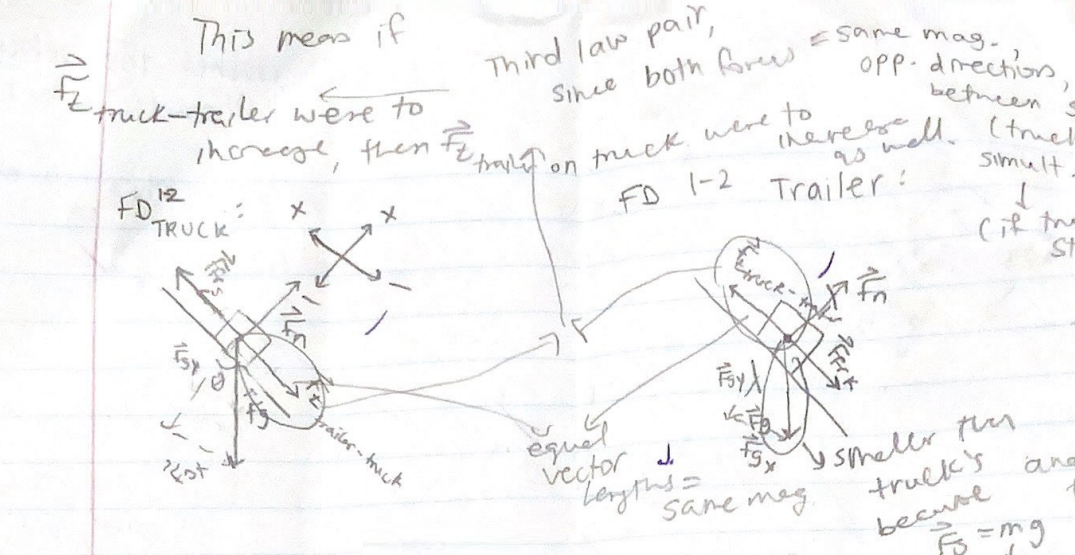 This means if
F⃗t truck-trailer were to
increase, then F⃗t trailer on truck were to
increase
as well.
Third law pair,
since both forces = same mag.,
opp. directions,
between
simult.
FD 1-2 TRUCK:
x x
F⃗n
F⃗gy θ
F⃗g
trailer-truck
FD 1-2 Trailer:
F⃗t truck-trailer
F⃗n
F⃗gy
F⃗g
F⃗gx
equal
vector
lengths =
same mag.
smaller than
truck's
because
F⃗g = mg